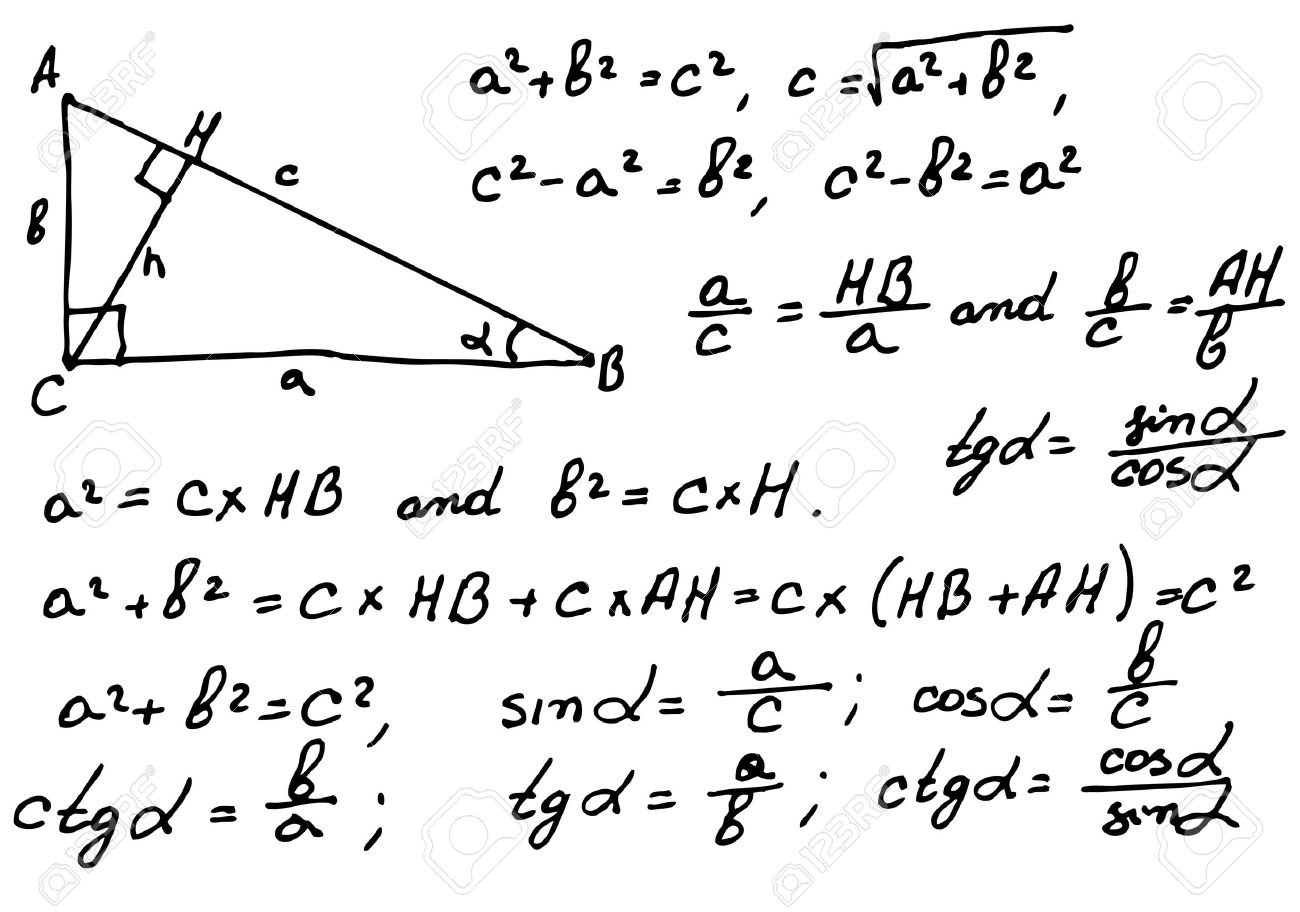 A
H
c
в
h
α
a
C
B
a²+в²=c², c=√a²+в²,
c²-a²=в², c²-в²=a²
a/c = HB/a and в/c = AH/в
tgα= sinα/cosα
a²= c×HB and в²=c×H.
a²+в²=c×HB+c×AH=c×(HB+AH)=c²
a²+в²=c², sinα= a/c ; cosα= в/c
ctgα= в/a ; tgα= a/в ; ctgα= cosα/sinα
123RF